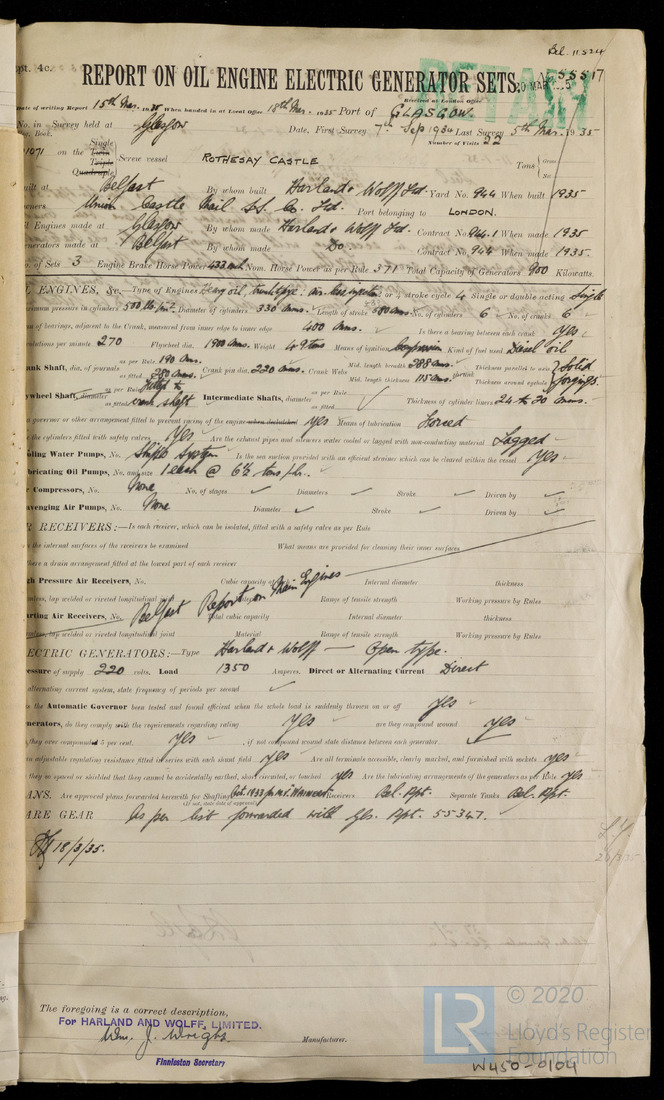 Bel. 11524
pt. 4c.
REPORT ON OIL ENGINE ELECTRIC GENERATOR SETS.
RETAIN
No 55517
20 MAR 1935
Received at London Office
Date of writing Report 15th Mar. 1935 When handed in at Local Office 18th Mar. 1935 Port of GLASGOW.
No. in Survey held at Glasgow Date, First Survey 7th Sep 1934 Last Survey 5th Mar. 1935
Book. Number of Visits 22
71071 on the Single Twin Triple Quadruple Screw vessel ROTHESAY CASTLE Tons Gross Net
uilt at Belfast By whom built Harland & Wolff Ltd. Yard No. 944 When built 1935
ners Union Castle Mail S.S. Co. Ltd. Port belonging to LONDON.
l Engines made at Glasgow By whom made Harland & Wolff Ltd. Contract No. 944.1 When made 1935
nerators made at Belfast By whom made Do Contract No. 944 When made 1935.
. of Sets 3 Engine Brake Horse Power 433 each Nom. Horse Power as per Rule 371 Total Capacity of Generators 900 Kilowatts.
L ENGINES, &c.— Type of Engines Heavy oil, trunk type: airless injection 2 or 4 stroke cycle 4 Single or double acting Single
ximum pressure in cylinders 500 lb/in². Diameter of cylinders 330 mms. Length of stroke 580 mms. No. of cylinders 6 No. of cranks 6
n of bearings, adjacent to the Crank, measured from inner edge to inner edge 400 mms. Is there a bearing between each crank yes
olutions per minute 270 Flywheel dia. 1900 mms. Weight 4.9 tons Means of ignition Compression Kind of fuel used Diesel oil
ank Shaft, dia. of journals as per Rule 190 mms. as fitted 220 mms. Crank pin dia. 220 mms. Crank Webs Mid. length breadth 288 mms. Mid. length thickness 115 mms. Thickness parallel to axis Thickness around eyehole Solid forgings
ywheel Shaft, diameter as per Rule as fitted crank shaft Intermediate Shafts, diameter as per Rule as fitted Thickness of cylinder liners 24 to 30 mms.
a governor or other arrangement fitted to prevent racing of the engine when declutched yes Means of lubrication Forced
e the cylinders fitted with safety valves Yes Are the exhaust pipes and silencers water cooled or lagged with non-conducting material Lagged
oling Water Pumps, No. Ship's System Is the sea suction provided with an efficient strainer which can be cleared within the vessel Yes
bricating Oil Pumps, No. and size 1 each @ 6½ tons/hr.
r Compressors, No. None No. of stages Diameters Stroke Driven by
avenging Air Pumps, No. None Diameter Stroke Driven by
R RECEIVERS:— Is each receiver, which can be isolated, fitted with a safety valve as per Rule
the internal surfaces of the receivers be examined What means are provided for cleaning their inner surfaces
here a drain arrangement fitted at the lowest part of each receiver
gh Pressure Air Receivers, No. Cubic capacity of each Internal diameter thickness
mless, lap welded or riveted longitudinal joint Material Range of tensile strength Working pressure by Rules
Belfast Report on Main Engines
arting Air Receivers, No. Total cubic capacity Internal diameter thickness
mless, lap welded or riveted longitudinal joint Material Range of tensile strength Working pressure by Rules
ECTRIC GENERATORS:— Type Harland & Wolff — Open type.
essure of supply 220 volts. Load 1350 Amperes. Direct or Alternating Current Direct
alternating current system, state frequency of periods per second
s the Automatic Governor been tested and found efficient when the whole load is suddenly thrown on or off yes
enerators, do they comply with the requirements regarding rating yes are they compound wound yes
they over compounded 5 per cent. yes , if not compound wound state distance between each generator
n adjustable regulating resistance fitted in series with each shunt field yes Are all terminals accessible, clearly marked, and furnished with sockets yes
they so spaced or shielded that they cannot be accidentally earthed, short circuited, or touched yes Are the lubricating arrangements of the generators as per Rule yes
ANS. Are approved plans forwarded herewith for Shafting Receivers Bel. Rpt. Separate Tanks Bel. Rpt.
(If not, state date of approval)
ARE GEAR As per list forwarded with Gls. Rpt. 55347.
18/3/35.
The foregoing is a correct description,
For HARLAND AND WOLFF, LIMITED.
Wm. J. Wright Manufacturer.
Finnieston Secretary
LR
© 2020
Lloyd's Register
Foundation
W450-0104